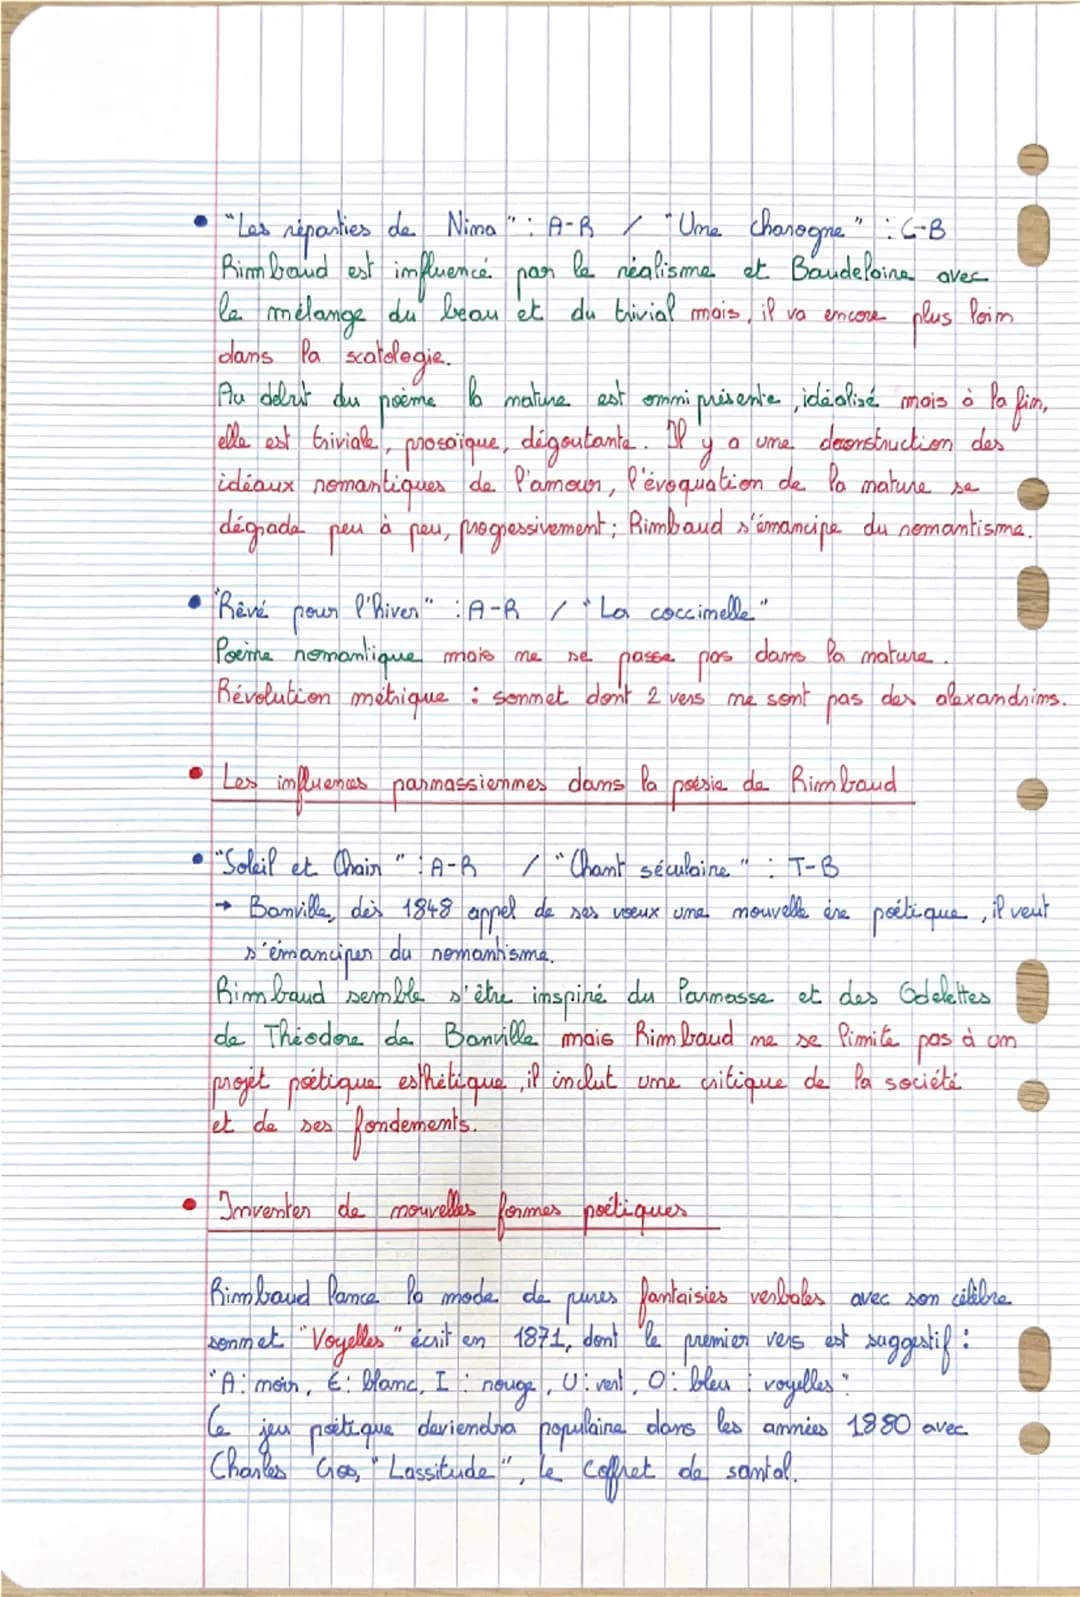 • "Les réparties de Nina" : A-R / "Une charogne" : C-B
Rimbaud est influencé par le réalisme et Baudelaire avec
le mélange du beau et du trivial mais, il va encore plus loin
dans la scatologie.
Au début du poème la nature est omni présente, idéalisé mais à la fin,
elle est triviale, prosaïque, dégoutante. Il y a une deconstruction des
idéaux romantiques de l'amour, l'évoquation de la nature se
dégrade peu à peu, progressivement ; Rimbaud s'émancipe du romantisme.
• "Rêvé pour l'hiver" : A-R / "La coccinelle"
Poème romantique mais ne se passe pas dans la nature.
Révolution métrique : sonnet dont 2 vers ne sont pas des alexandrins.
• Les influences parnassiennes dans la poésie de Rimbaud
• "Soleil et Chair" : A-R / "Chant séculaire" : T-B
→ Banville, dès 1848 appel de ses voeux une nouvelle ère poétique, il veut
s'émanciper du romantisme.
Rimbaud semble s'être inspiré du Parnasse et des Odelettes
de Théodore de Banville mais Rimbaud ne se limite pas à un
projet poétique esthétique, il inclut une critique de la société
et de ses fondements.
• Inventer de nouvelles formes poétiques
Rimbaud lance la mode de pures fantaisies verbales avec son célèbre
sonnet "Voyelles" écrit en 1871, dont le premier vers est suggestif :
"A : noir, E : blanc, I : rouge, U : vert, O : bleu : voyelles"
Ce jeu poétique deviendra populaire dans les années 1880 avec
Charles Cros, "Lassitude", le coffret de santal.